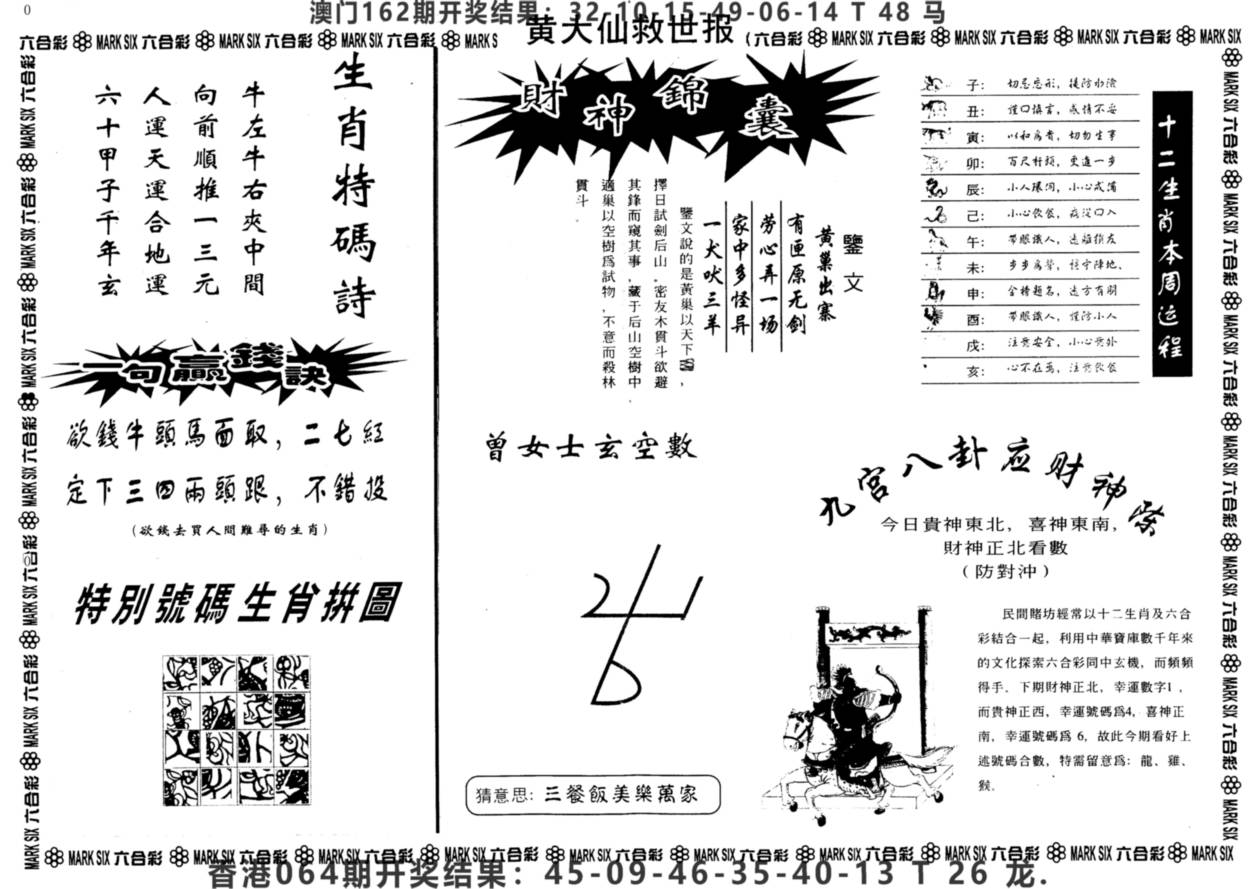 0
澳门162期开奖结果：32-10-15-49-06-14 T 48 马
黄大仙救世报
六合彩 MARK SIX 六合彩 MARK SIX 六合彩 MARK SIX 六合彩 MARK S
(六合彩 MARK SIX 六合彩 MARK SIX 六合彩 MARK SIX 六合彩 MARK SIX
生肖特碼詩
牛左牛右夾中間
向前順推一三元
人運天運合地運
六十甲子千年玄
一句贏錢訣
欲錢牛頭馬面取，二七紅
定下三四兩頭跟，不錯投
(欲錢去買人間難尋的生肖)
特別號碼生肖拼圖
財神錦囊
鑒文
黃巢出寨
有匣原无劍
劳心弄一场
家中多怪异
一犬吠三羊
鑒文說的是黃巢以天下
擇日試劍后山﹐密友木貫斗欲避
其鋒而窺其事﹐藏于后山空樹中﹐
適巢以空樹爲試物﹐不意而殺林
貫斗﹒
曾女士玄空數
猜意思: 三餐飯美樂萬家
十二生肖本周运程
子: 切忌忘形，提防水險
丑: 謹口慎言，感情不妥
寅: 以和爲貴，切勿生事
卯: 百尺杆頭，更進一步
辰: 小人環伺，小心戒備
己: 小心飲食，病從口入
午: 帶眼識人，遠離損友
未: 步步爲營，謹守陣地、
申: 金榜題名，遠方有朋
酉: 帶眼識人，謹防小人
戌: 注意安全，小心意外
亥: 心不在焉，注意飲食
九宮八卦应财神柴
今日貴神東北，喜神東南，
財神正北看數
(防對沖)
民間賭坊經常以十二生肖及六合
彩結合一起，利用中華寶庫數千年來
的文化探索六合彩同中玄機，而頻頻
得手．下期財神正北，幸運數字1，
而貴神正西，幸運號碼爲4，喜神正
南，幸運號碼爲 6，故此今期看好上
述號碼合數，特需留意爲: 龍、雞、
猴．
MARK SIX 六合彩 MARK SIX 六合彩 MARK SIX 六合彩 MARK SIX 六合彩 MARK SIX 六合彩 MARK SIX 六合彩 MARK SIX 六合彩 MARK SIX 六合彩 MARK SIX 六合彩 MARK SIX
香港064期开奖结果：45-09-46-35-40-13 T 26 龙.